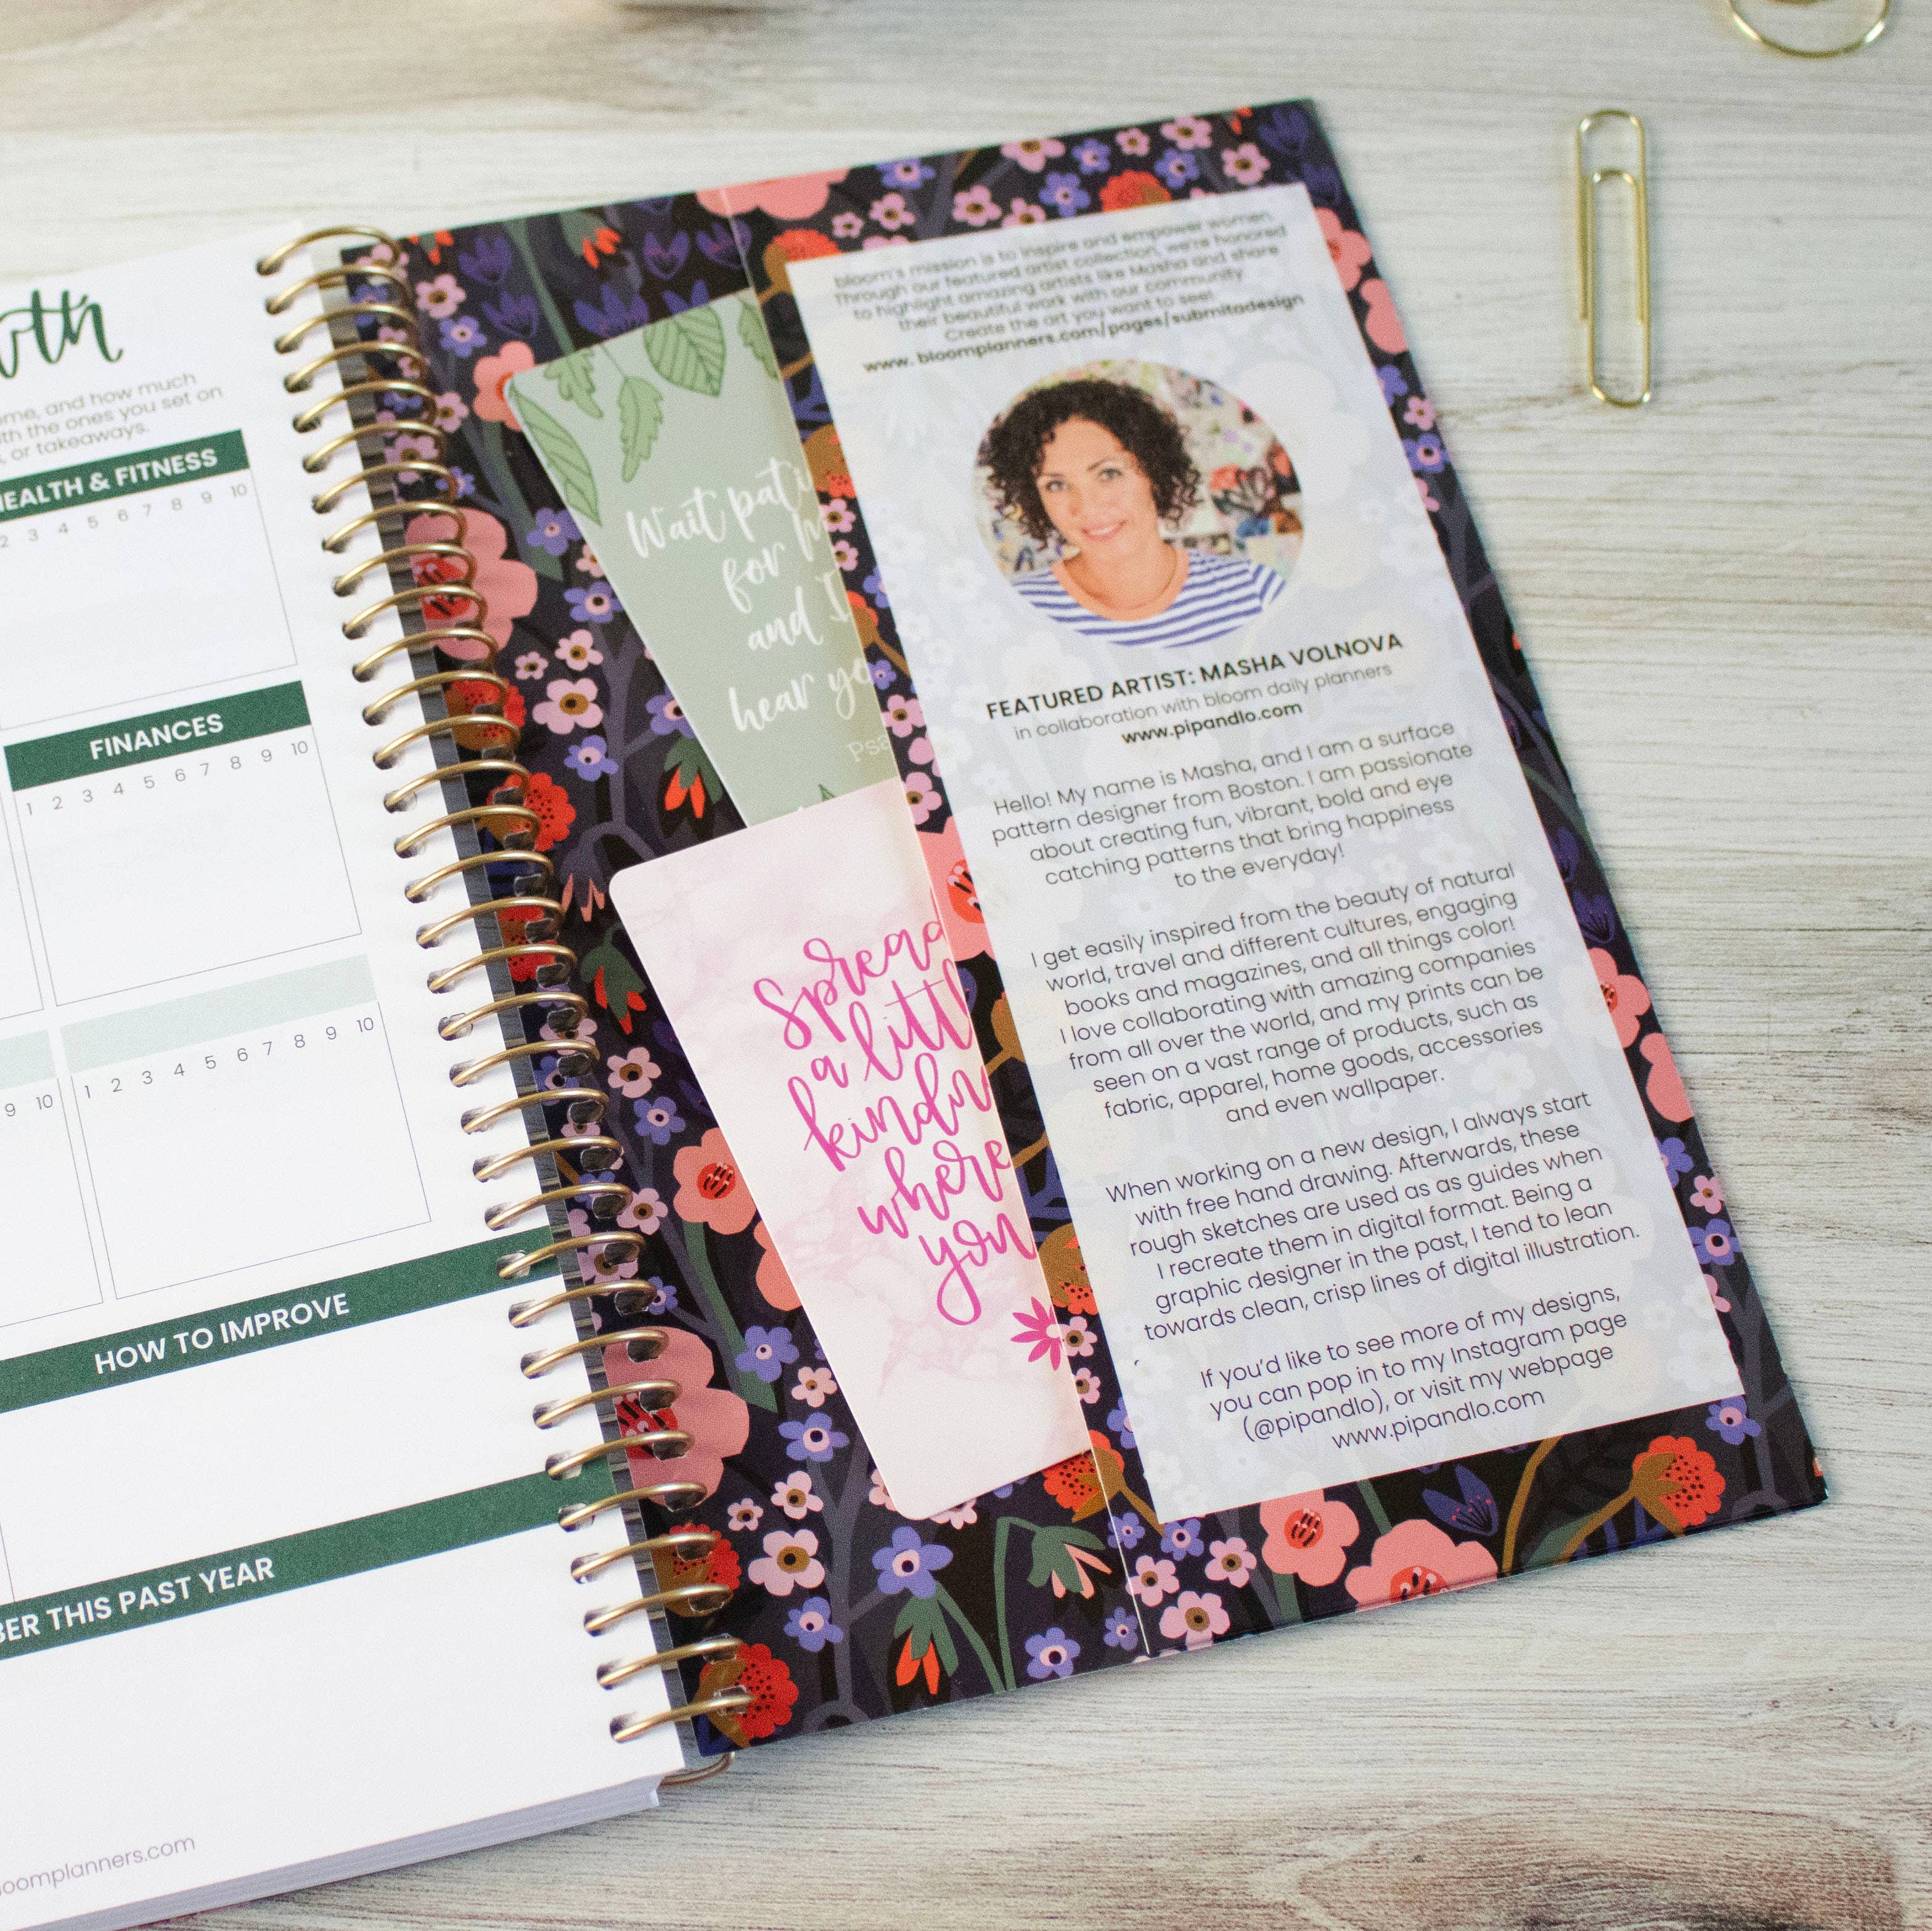 ome, and how much
th the ones you set on
, or takeaways.
EALTH & FITNESS
2 3 4 5 6 7 8 9 10
FINANCES
1 2 3 4 5 6 7 8 9 10
9 10
1 2 3 4 5 6 7 8 9 10
HOW TO IMPROVE
BER THIS PAST YEAR
loomplanners.com
Wait pati
for
and I
hear yo
Psa
Spread
a littl
kindn
where
you
bloom's mission is to inspire and empower women.
Through our featured artist collection, we're honored
to highlight amazing artists like Masha and share
their beautiful work with our community.
Create the art you want to see!
www. bloomplanners.com/pages/submitadesign
FEATURED ARTIST: MASHA VOLNOVA
in collaboration with bloom daily planners
www.pipandlo.com
Hello! My name is Masha, and I am a surface
pattern designer from Boston. I am passionate
about creating fun, vibrant, bold and eye
catching patterns that bring happiness
to the everyday!
I get easily inspired from the beauty of natural
world, travel and different cultures, engaging
books and magazines, and all things color!
I love collaborating with amazing companies
from all over the world, and my prints can be
seen on a vast range of products, such as
fabric, apparel, home goods, accessories
and even wallpaper.
When working on a new design, I always start
with free hand drawing. Afterwards, these
rough sketches are used as as guides when
I recreate them in digital format. Being a
graphic designer in the past, I tend to lean
towards clean, crisp lines of digital illustration.
If you'd like to see more of my designs,
you can pop in to my Instagram page
(@pipandlo), or visit my webpage
www.pipandlo.com